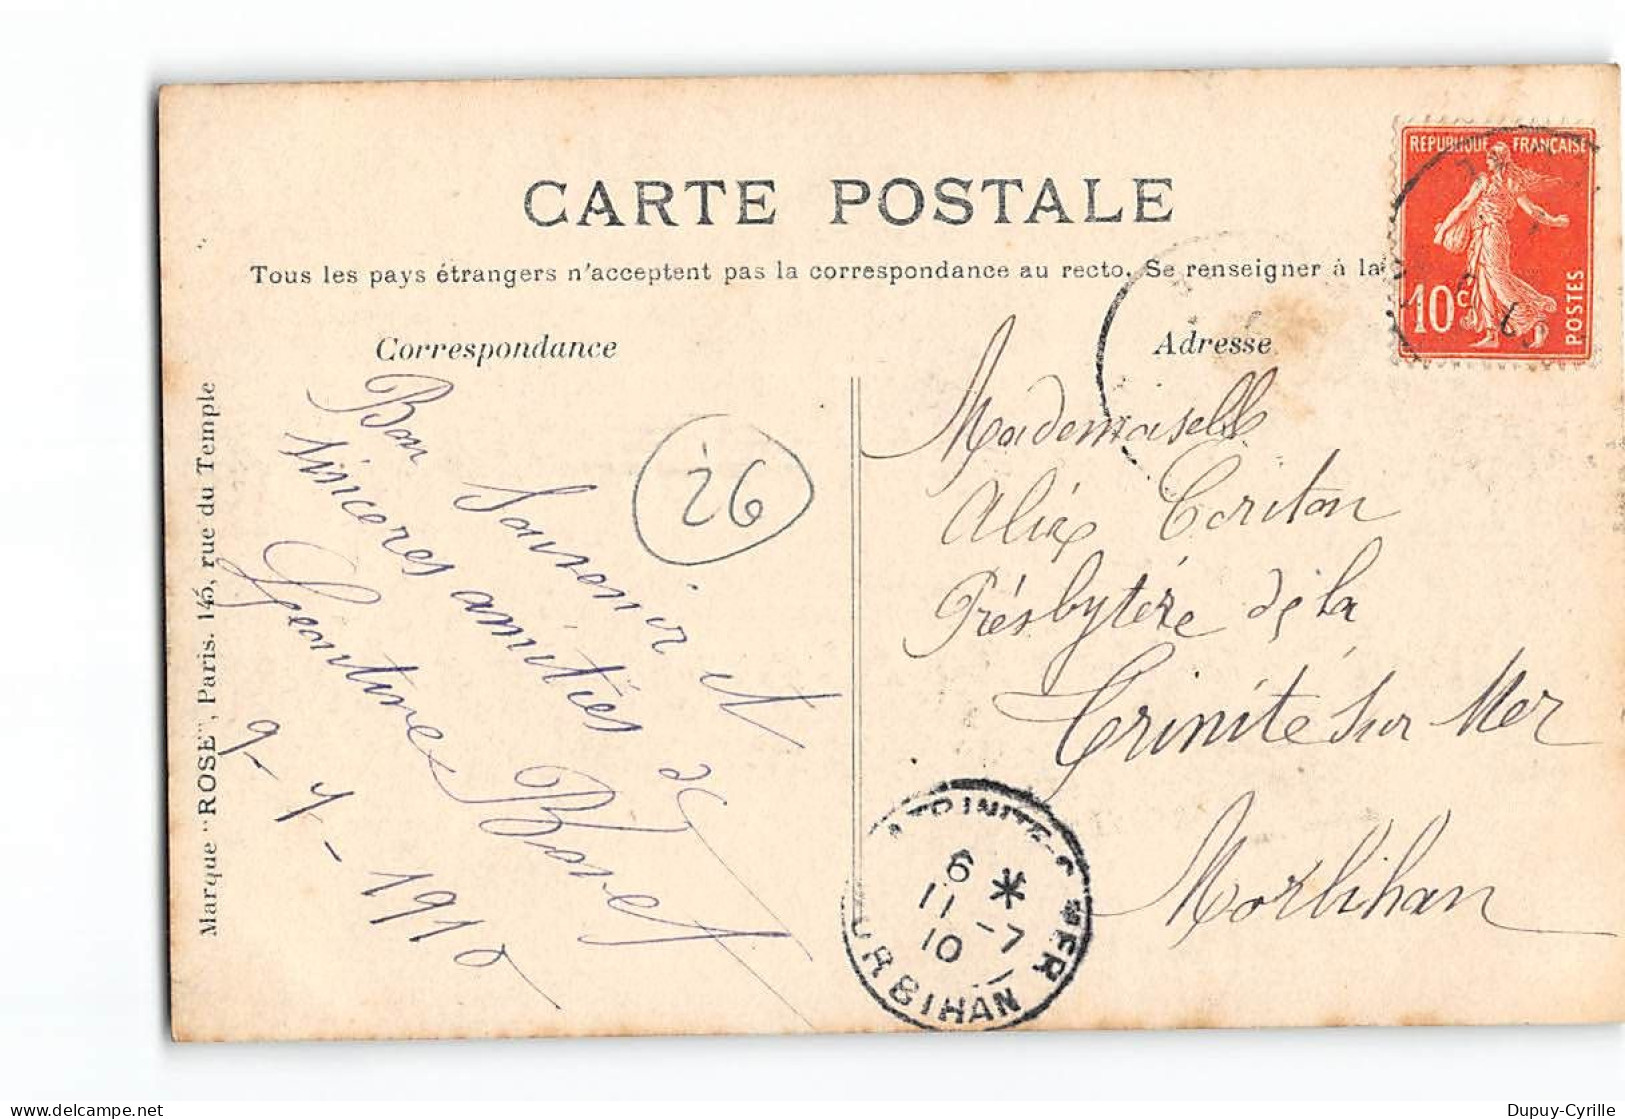 CARTE POSTALE
Tous les pays étrangers n'acceptent pas la correspondance au recto. Se renseigner à la
Correspondance
Adresse
RÉPUBLIQUE FRANÇAISE
10 c
POSTES
Marque "ROSE", Paris. 145, rue du Temple
26
Bon Souvenir et
sincères amitiés de
Léontine Bonet
9-7-1910
Mademoiselle
Alix Coriton
Présbytére de la
Trinité sur Mer
Morbihan
6 *
11 -7
10